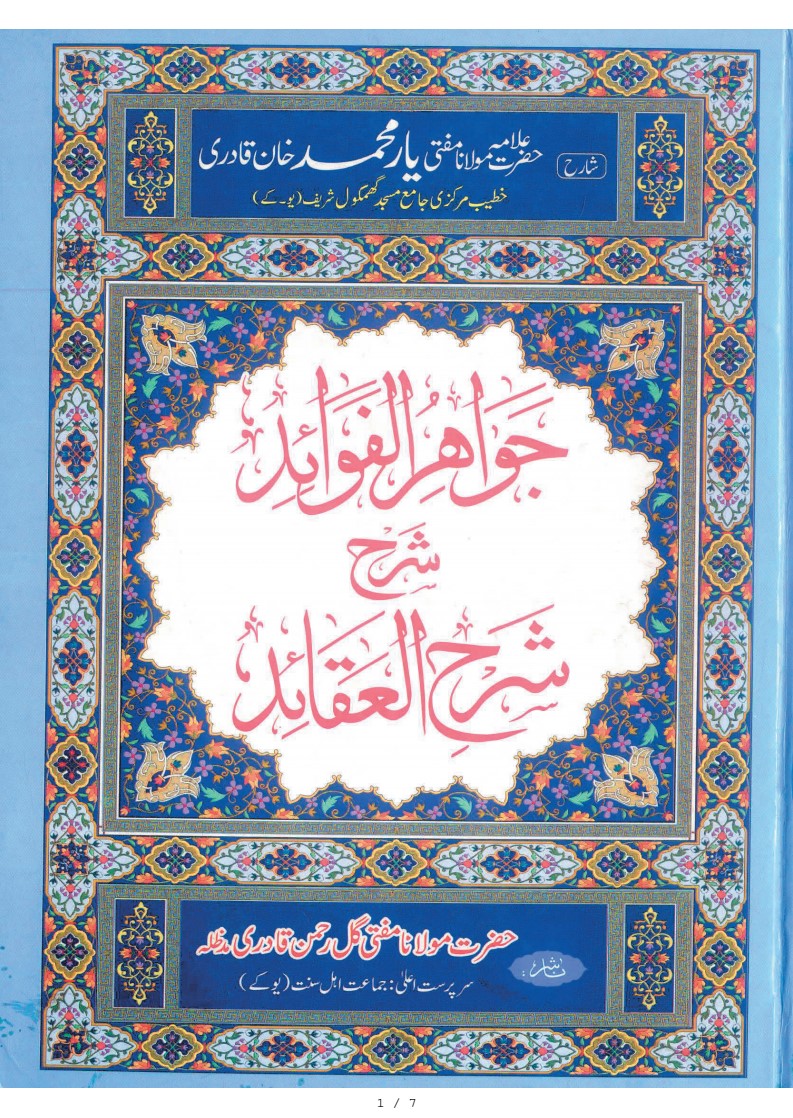 شارح حضرت علامہ مولانا مفتی یار محمد خان قادری
خطیب مرکزی جامع مسجد گھمکول شریف (یو۔کے)
جَوَاهِرُ الْفَوَائِدِ
شرح
شَرْحِ الْعَقَائِدِ
ناشر: حضرت مولانا مفتی گل رحمن قادری مدظلہ
سرپرست اعلیٰ: جماعت اہل سنت (یو کے)
1 / 7